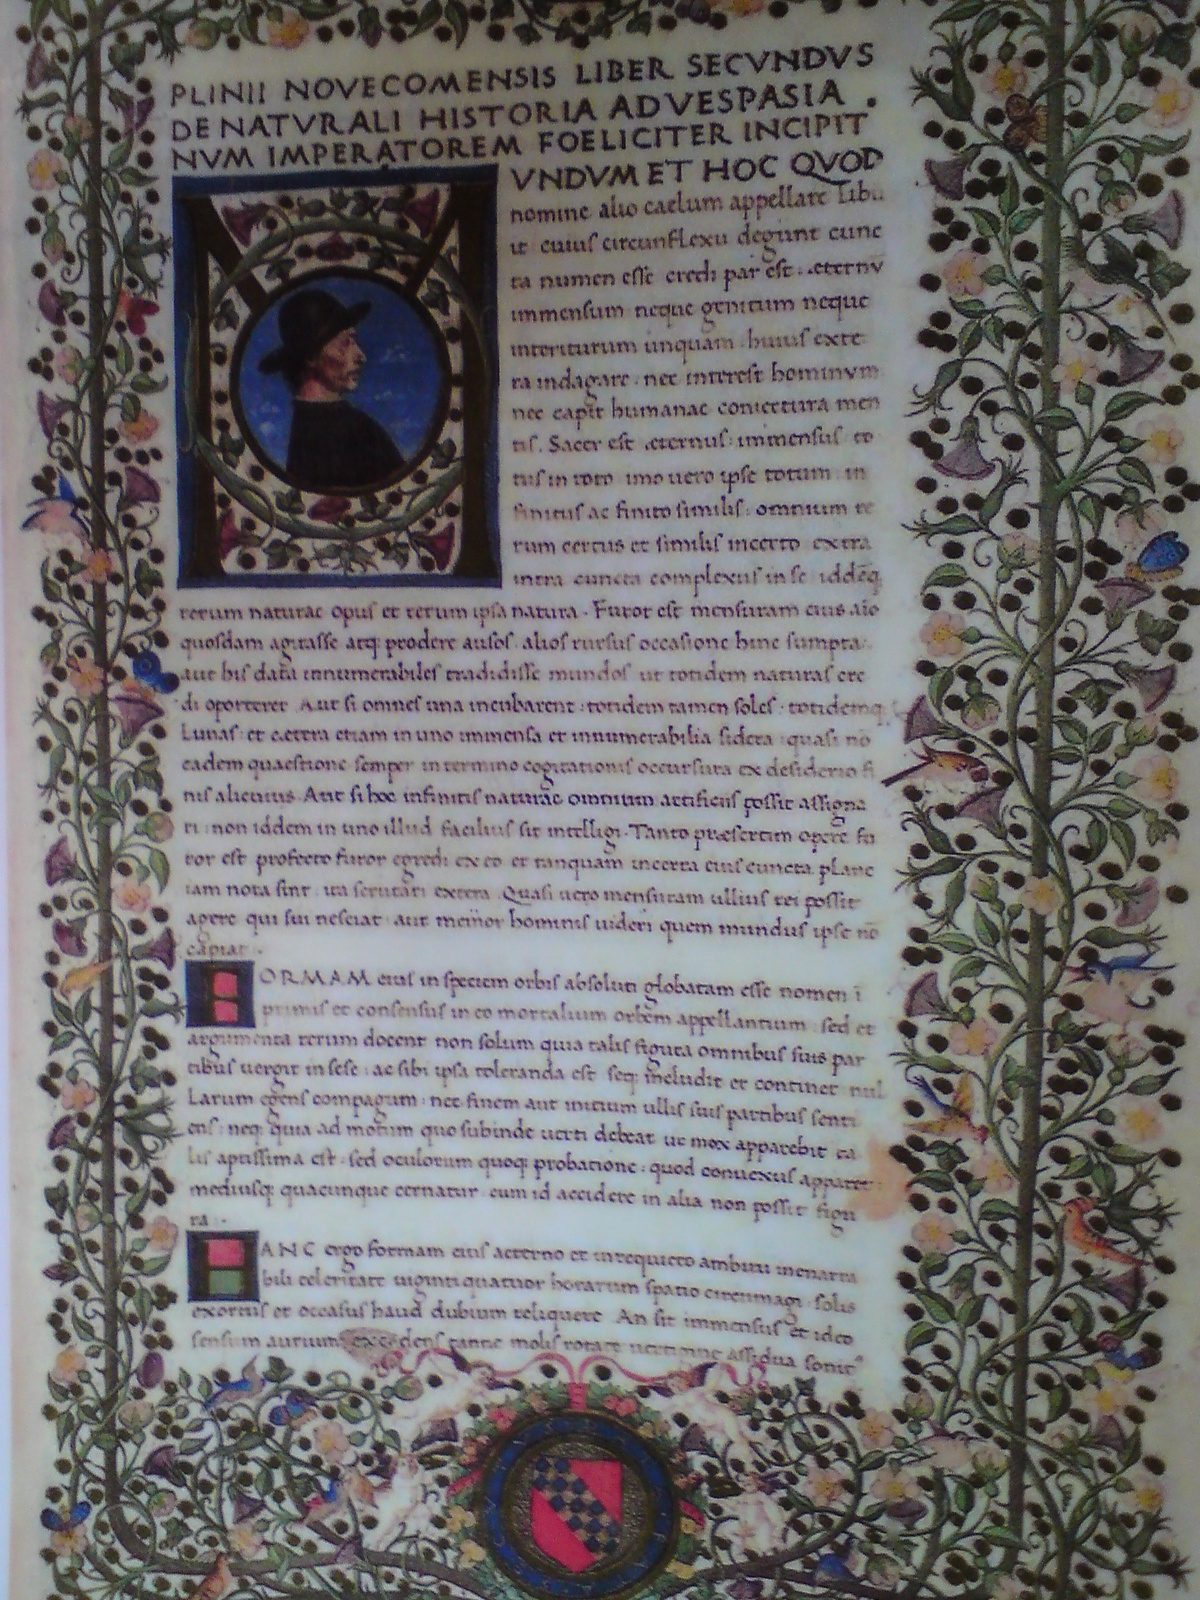 PLINII NOVECOMENSIS LIBER SECVNDVS
DE NATVRALI HISTORIA AD VESPASIA .
NVM IMPERATOREM FOELICITER INCIPIT
VNDVM ET HOC QVOD
nomine alio caelum appellare Libu
it cuius circunflexu degunt cunc
ta numen esse credi par est: æternv
immensum neque genitum neque
interiturum unquam. huius exte
ra indagare. nec interest hominvm
nec capit humanae coniectura men
tis. Sacer est æternus: immensus to
tus in toto imo uero ipse totum in
finitus ac finito similis: omnium re
rum certus et similis incerto extra
intra cuncta complexus in se iddēq
rerum naturae opus et rerum ipsa natura. Furor est mensuram eius aīo
quosdam agitasse atq; prodere ausos. alios rursus occasione hinc sumpta.
aut his data innumerabiles tradidisse mundos ut totidem naturas cre
di oporteret Aut si omnes una incubarent: totidem tamen soles. totidemq;
Lunas: et cætera etiam in uno immensa et innumerabilia sidera: quasi nō
eadem quaestione semper in termino cogitationis occursura ex desiderio fi
nis alicuius. Aut si hoc infinitis naturae omnium artificens possit assigna
ri. non iddem in uno illud facilius sit intelligi. Tanto præsertim opere fu
ror est profecto furor egredi ex eo et tanquam incerta eius cuncta plane
iam nota sint. ita scrutari extera. Quasi uero mensuram ullius rei possit
agere qui sui nesciat. aut mein̄or hominis uideri quem mundus ipse nō
capiat.
FORMAM eius in speciem orbis absoluti globatam esse nomen ī
primis et consensus in eo mortalium orbem appellantium. sed et
argumenta rerum docent non solum quia talis figura omnibus suis par
tibus uergit in sese: ac sibi ipsa toleranda est seq; includit et continet nul
Larum egens compagum: nec finem aut initium ullis suis partibus senti
ens: neq; quia ad motum quo subinde uerti debeat ut mox apparebit ta
lis aptissima est. sed oculorum quoq; probatione: quod conuexus apparet:
mediusq; quacunque cernatur. cum id accidere in alia non possit figu
ra.
HANC ergo formam eius aeterno et inrequieto ambitu inenarra
bili celeritate uiginti quatuor horarum spatio circumagi. solis
exortus et occasus haud dubium reliquere. An sit immensus et ideo
sensum aurium excedens tantæ molis rotatæ uertigine assidua sonit'